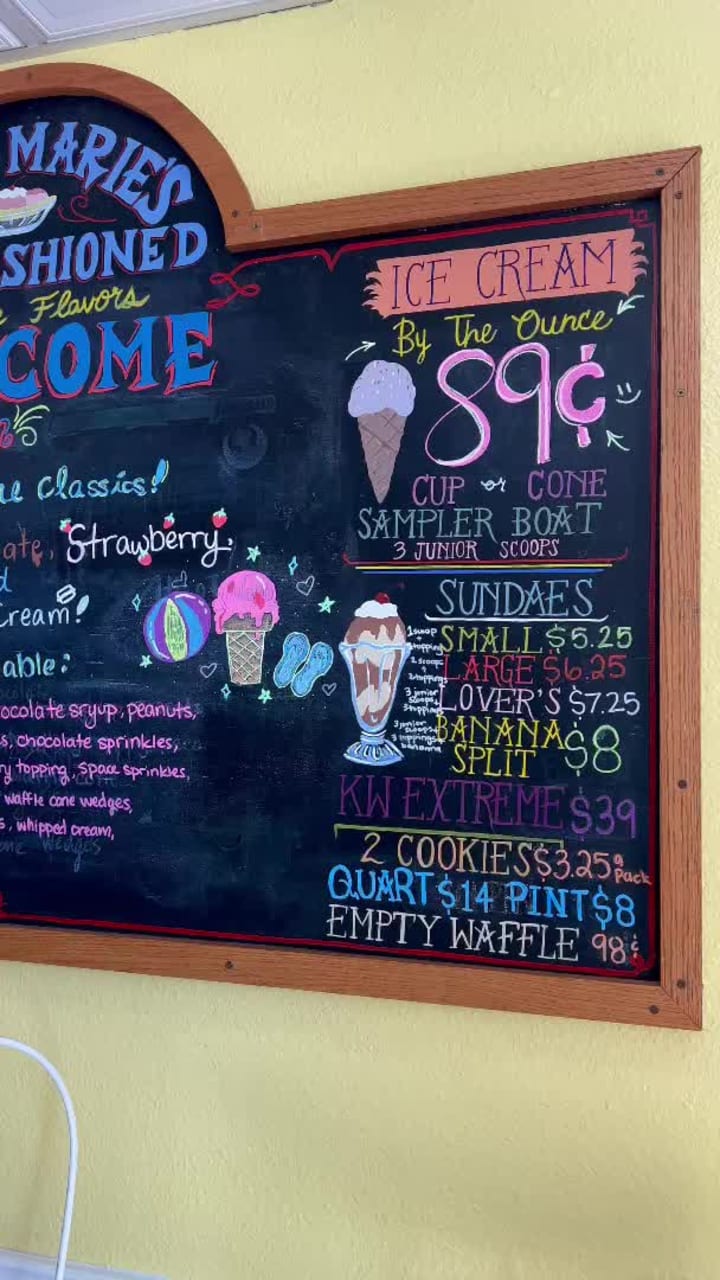 MARIE'S
SHIONED
Flavors
COME
classics!
ate, Strawberry,
d
Cream!
able:
ocolate sryup, peanuts,
s, chocolate sprinkles,
ry topping, space sprinkles,
waffle cone wedges,
s, whipped cream,
wedges
ICE CREAM
By The Ounce
89¢
CUP or CONE
SAMPLER BOAT
3 JUNIOR SCOOPS
SUNDAES
1 scoop + topping SMALL $5.25
2 scoops + 2 toppings LARGE $6.25
3 junior scoops + 3 toppings LOVER'S $7.25
3 junior scoops + 3 toppings + banana BANANA SPLIT $8
KW EXTREME $39
2 COOKIES $3.25 a pack
QUART $14 PINT $8
EMPTY WAFFLE 98¢